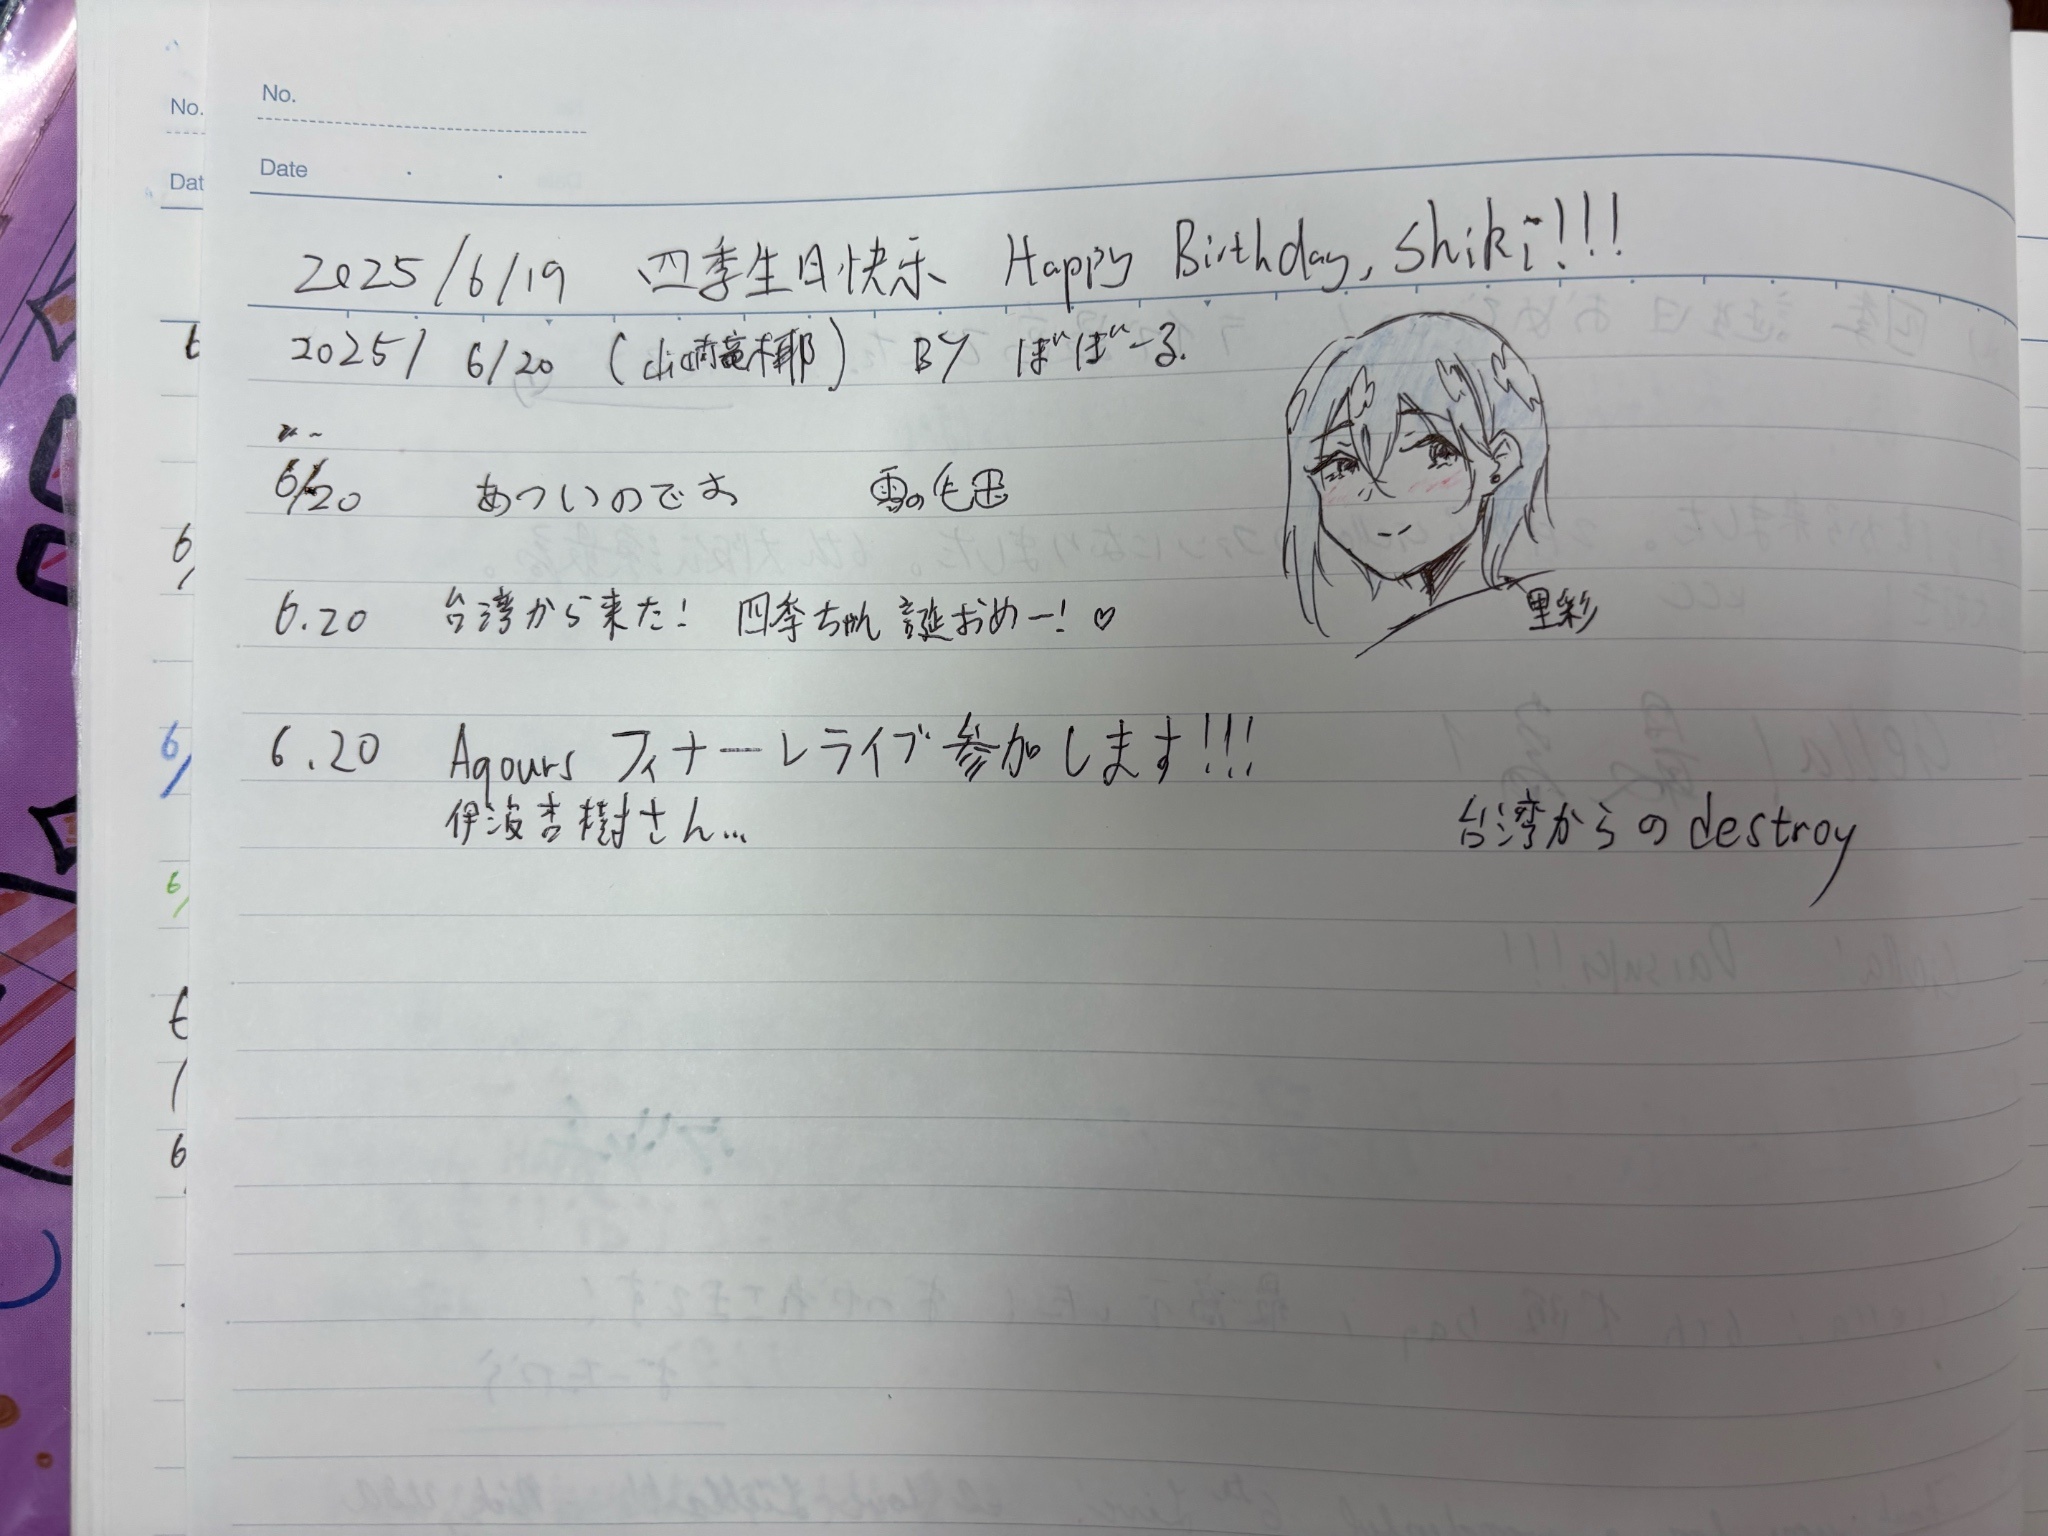 No.
Date
2025/6/19 四季生日快乐 Happy Birthday, Shiki!!!
2025/ 6/20 BY ばばーる.
6/20 あついのです
6.20 台湾から来た! 四季ちゃん誕おめー! ♡
里彩
6.20 Aqours フィナーレライブ参加します!!!
伊波杏樹さん...
台湾からのdestroy